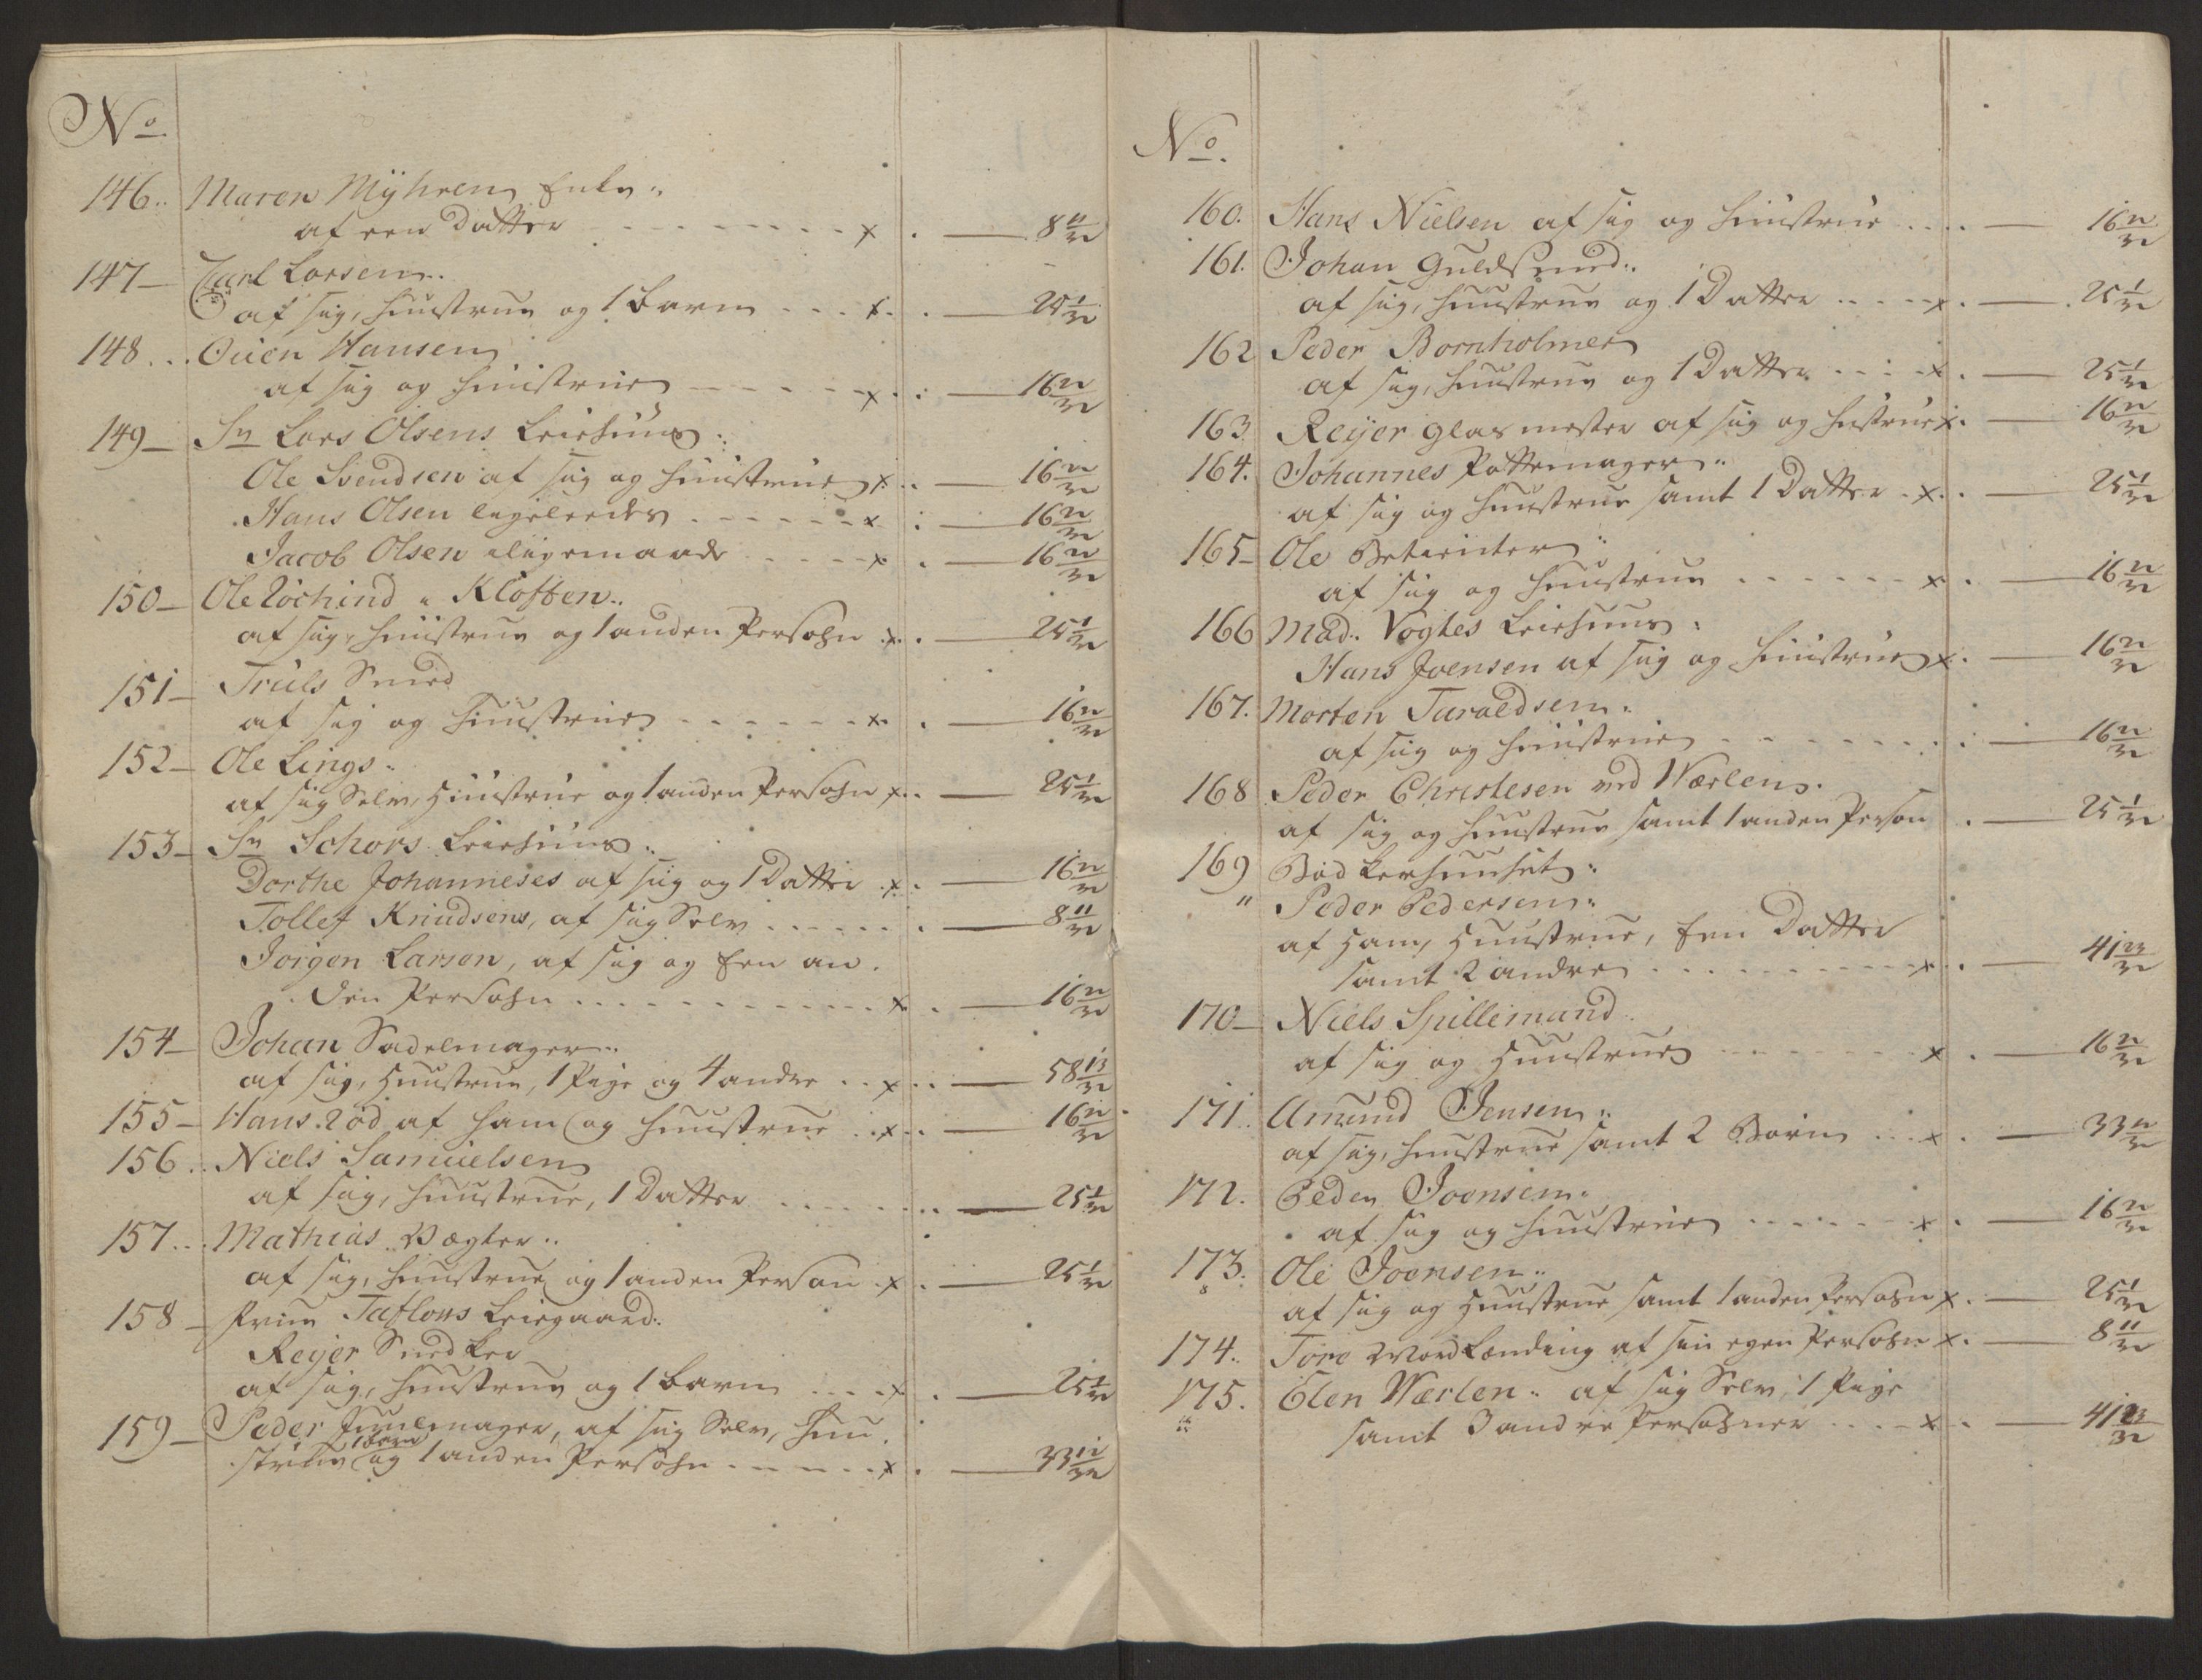 No
146.. Maren Myhren Enke..
af een Datter - - - - - - - - x . — 8 11/32
147 — Carl Larsen..
af sig, Huustrue og 1 Barn - - - x . — 25 1/32
148 ... Ouen Hansen
af sig og Huustrue - - - - - - x . — 16 22/32
149 — Sr Lars Olsens Leiehuus..
Ole Svendsen af sig og Huustrue x . — 16 22/32
Hans Olsen ligeleedes . - - - - - x . — 16 22/32
Jacob Olsen iligemaade - - - - x . — 16 22/32
150 — Ole Kløften..
af sig, Huustrue og 1 anden Persohn x . — 25 1/32
151 — Truls Smed
af sig og Huustrue - - - - - - x . — 16 22/32
152 — Ole Lings..
af sig Selv, Huustrue og 1 anden Persohn x . — 25 1/32
153 — Sr Schors Leiehuus..
Dorthe Johanneses af sig og 1 Datter x . — 16 22/32
Tollef Knudsens, af sig Selv . . . . . . — 8 11/32
Jørgen Larsen, af sig og Een an.
den Persohn . . . . . . . . . . . x . — 16 22/32
154 — Johan Sadelmager..
af sig, Huustrue, 1 Pige og 4 andre . . x . — 58 13/32
155 — Hans Rød af ham og Huustrue . . x . — 16 22/32
156 .. Niels Samuelsen
af sig, Huustrue, 1 Datter . . . . . . . — 25 1/32
157 ... Mathias Vægter..
af sig, Huustrue og 1 anden Person x . — 25 1/32
158 — Leiegaard..
Reyer Snedker
af sig, Huustrue og 1 Barn . . . x . — 25 1/32
159 — Peder Juulmager, af sig Selv, Huu.
strue 1 barn og 1 anden Persohn . - - - - x . — 33 12/32
No
160. Hans Nielsen af sig og Huustrue . . . . — 16 22/32
161. Johan Guldsmed..
af sig, Huustrue og 1 Datter . . - - x . — 25 1/32
162 Peder Bornholmer
af sig, Huustrue og 1 Datter . . . - x . — 25 1/32
163. Reyer Glasmester af sig og Hustrue x . — 16 22/32
164. Johannes Pottemager..
af sig og Huustrue samt 1 Datter . x . — 25 1/32
165 — Ole
af sig og Huustrue . - - - - - - x . — 16 22/32
166 Mad. Vogtes Leiehuus..
Hans Joensen af sig og Huustrue x . — 16 22/32
167. Morten Taraldsen..
af sig og Huustrue - - - - - - - . — 16 22/32
168 Peder Christesen ved Værlen..
af sig og Huustrue samt 1 anden Person . — 25 1/32
169 Bødkerhuuset..
" Peder Pedersen..
af ham, Huustrue, Een Datter
samt 2 andre . . . . . . . . . - - x . — 41 23/32
170 — Niels Spillemand..
af sig og Huustrue - - - - - - - x . — 16 22/32
171. Amund Jensen..
af sig, Huustrue samt 2 Børn . . . x . — 33 12/32
172. Peder Joensen..
af sig og Huustrue . . . . . . . x . — 16 22/32
173. Ole Joensen..
af sig og Huustrue samt 1 anden Persohn x . — 25 1/32
174.. Tore af sin egen Persohn x . — 8 11/32
175. Elen Værlen.. af sig Selv, 1 Pige
samt 3 andre Persohner . . . - x . — 41 23/32